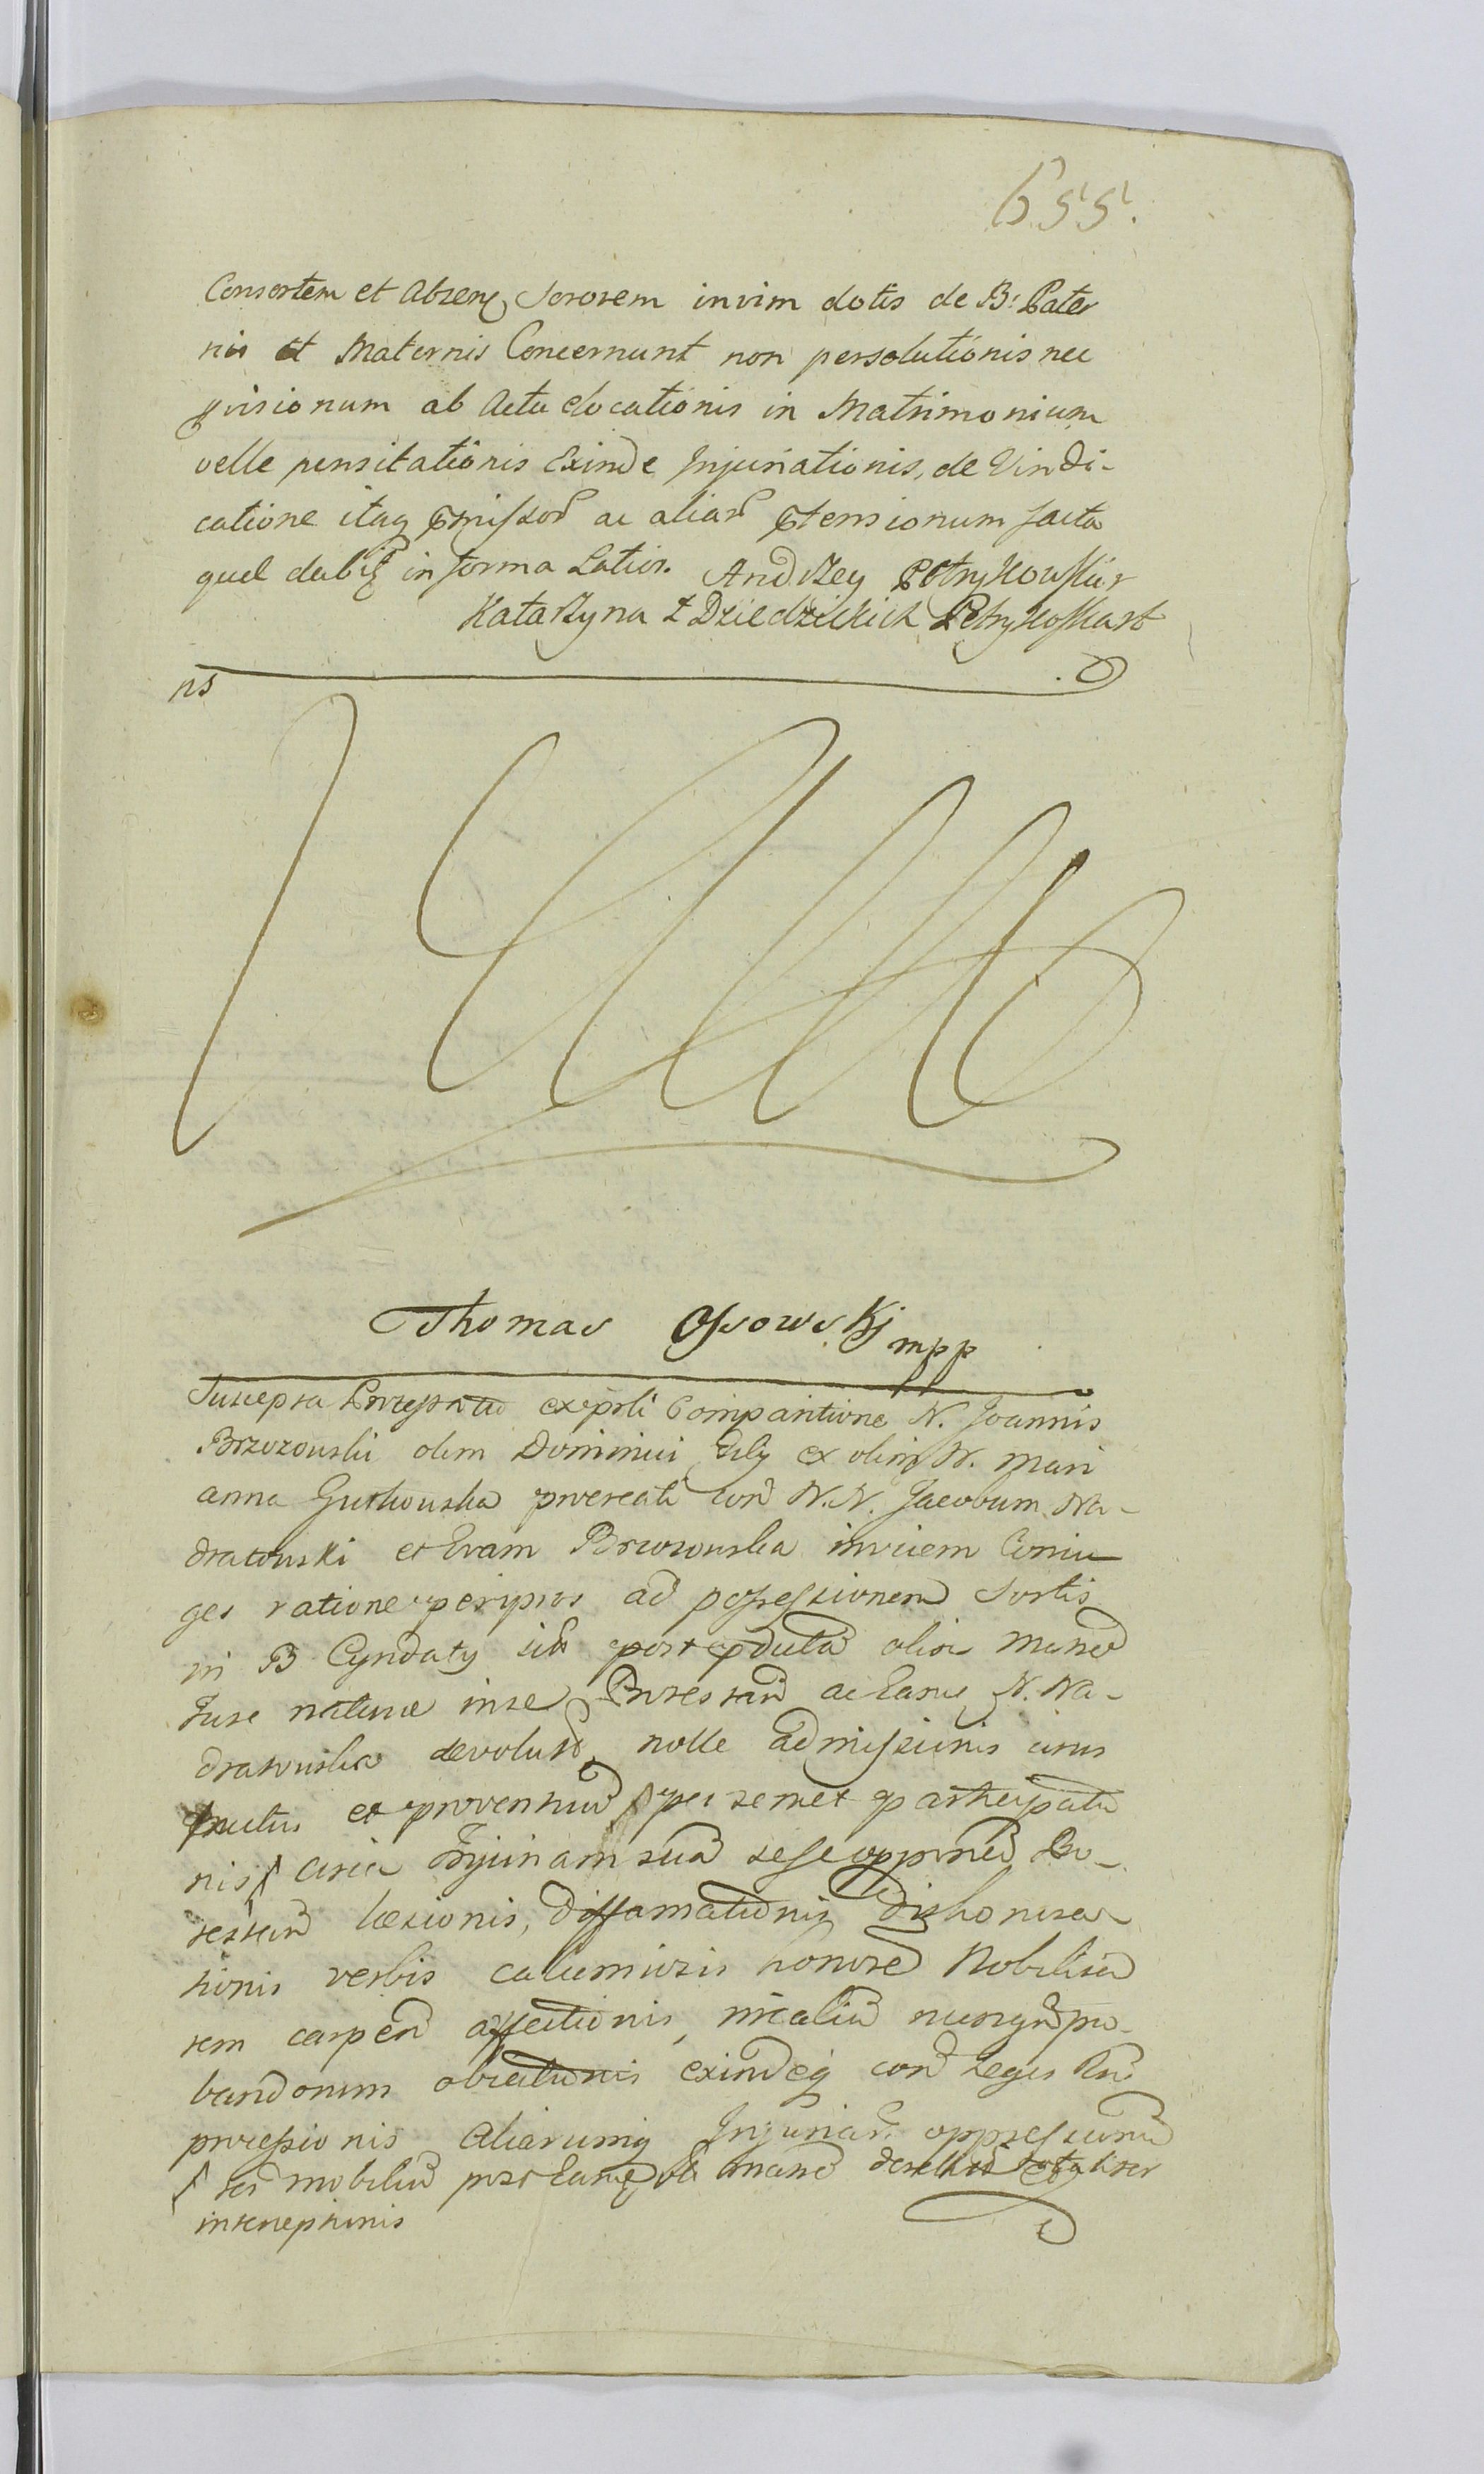 655.
Consortem et Absenq Sororem in vim dotis de B: Pater
nis et Maternis Concernunt non persolutionis nec
pvisionum ab Actu elocationis in Matrimonium
velle pensitationis Exinde Injuriationis, de Vindi-
catione itaq pmissor ac aliar ptensionum facta
quel debitt in forma Latior. Andrzey Petrykowski
Katarzyna z Dziedzickich Petrykoska
ns
Thomas Ossowskj mpp
Suscepta Protestatio ex psli Comparitione N. Joannis
Brzozowski olim Dominici Fily ex olim N. Mari
anna Gutkowska procreati con N.N. Jacobum Na-
dratowski et Evam Brzozowska invicem Coniu
ges ratione per ipsos ad possessionem Sortis
in B Cyndaty post pdicta olim
Jure nature inse Protestan ac Eanq N. Na-
dratowska devolut, nolle admissionis usus
fructus et proventuu per semet participatio
nis circa Injuriam sua sese opponen Pro-
testan læsionis, diffamationis dishonora
tionis verbis calumiosis honore Nobilita
tem carpen affectionis, nunqua pro-
bandorum obiectionis exindeq con Leges
processionis Aliarumq Injuriar oppressionu
res mobiliu post Eanq
interceptionis